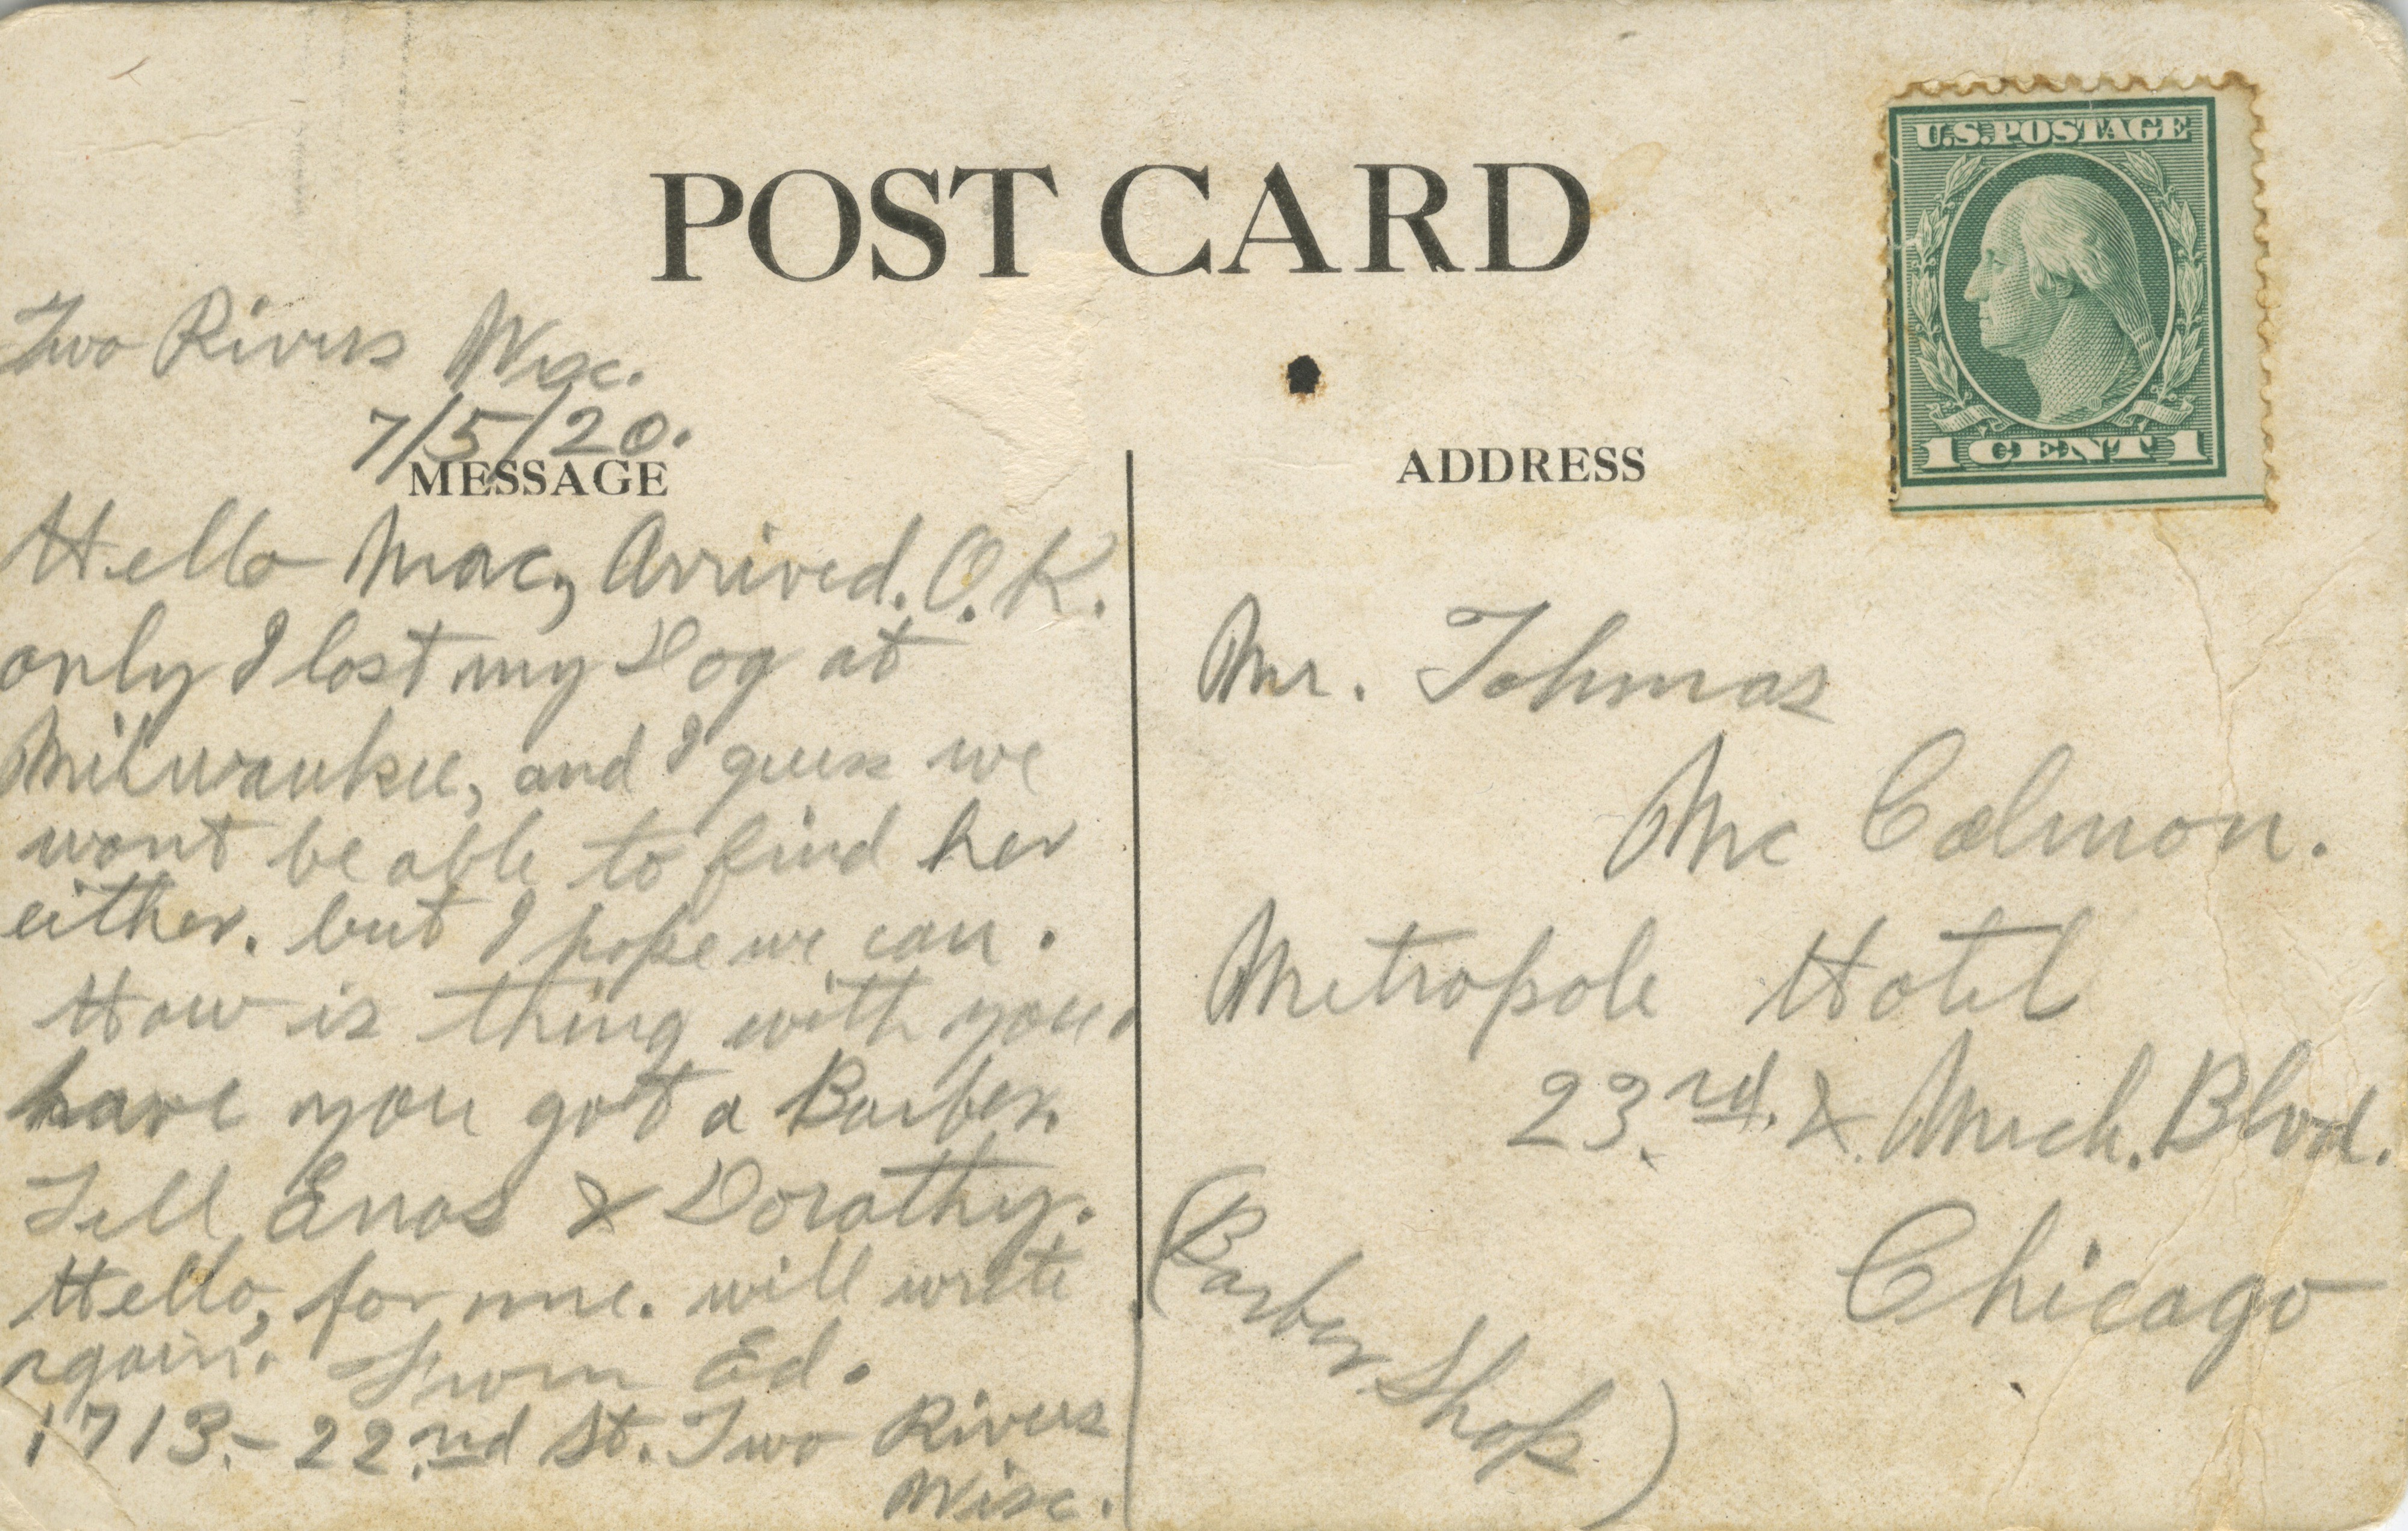 POST CARD
U.S. POSTAGE
1 CENT 1
Two Rivers Wisc.
7/5/20.
MESSAGE
Hello Mac, Arrived. O.K.
only I lost my Dog at
Milwaukee, and I guess we
wont be able to find her
either. but I hope we can.
How is thing with you.
have you got a Barber.
Tell Enos & Dorathy.
Hello, for me. will write
again. From Ed.
1713.- 22nd St. Two Rivers
Wisc.
ADDRESS
Mr. Tohmas
Mc Calmon.
Metropole Hotel
23.rd. & Mich. Blvd.
Chicago
(Barber Shop)